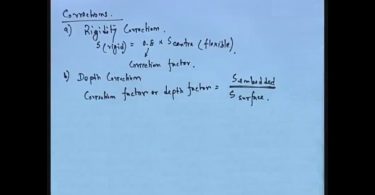 Corrections.
a) Rigidity Correction.
S (rigid) = 0.8 x S centre (flexible).
Correction factor.
b) Depth Correction
Correction factor or depth factor = S embedded
S surface.